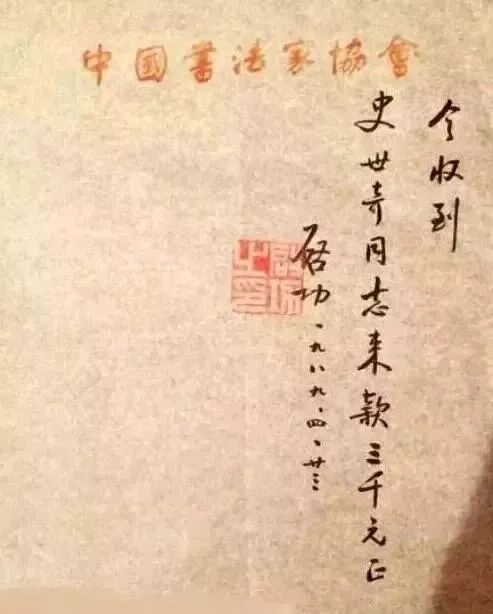 中國書法家協會
今收到
史世奇同志来款三千元正
启功 一九八九、四、廿三